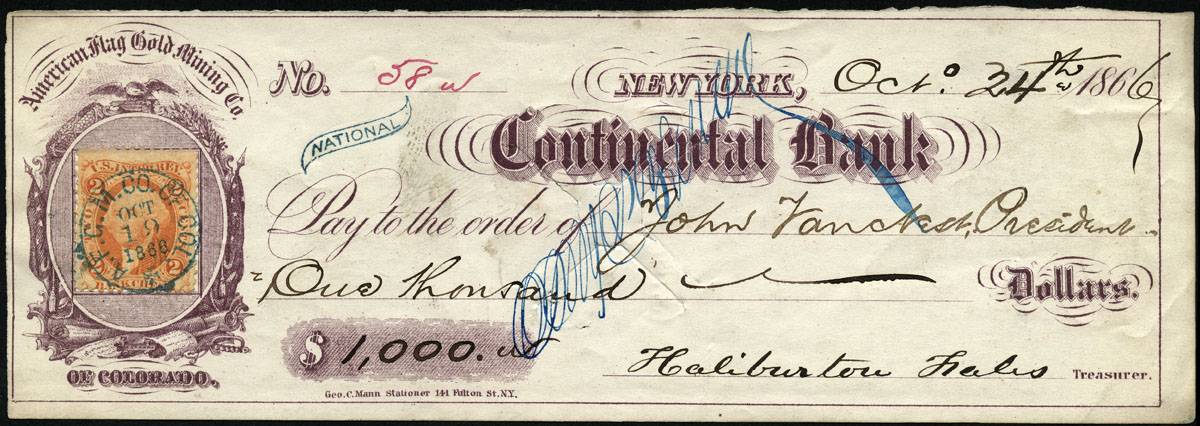 American Flag Gold Mining Co.
OF COLORADO.
U.S. INTER. REV.
2 2
A.F.G.M.CO. OF COL.
OCT
19
1866
2 2
BANK CHECK
No. 58
NEW YORK, Oct. 24th 1866
NATIONAL
Continental Bank
Pay to the order of John Vannest, President
One Thousand Dollars.
$ 1,000.
Haliburton Fales Treasurer.
Geo. C. Mann Stationer 141 Fulton St. N.Y.